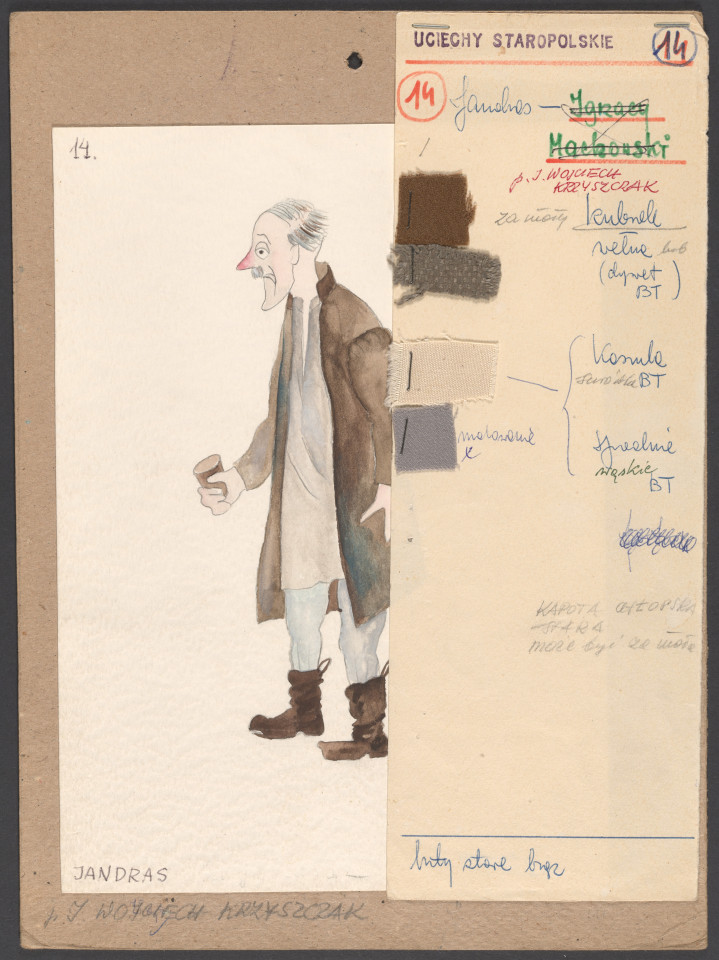 UCIECHY STAROPOLSKIE
14
14
Jandras — Ignacy
Machowski
p. J. WOJCIECH
KRZYSZCZAK
za mały kubrak
wełna lub
(dywet
BT)
Koszula
surówka BT
malowane
spodnie
wąskie
BT
KAPOTA CHŁOPSKA
STARA
może być za mała
buty stare brąz
14.
JANDRAS
p. J. WOJCIECH KRZYSZCZAK